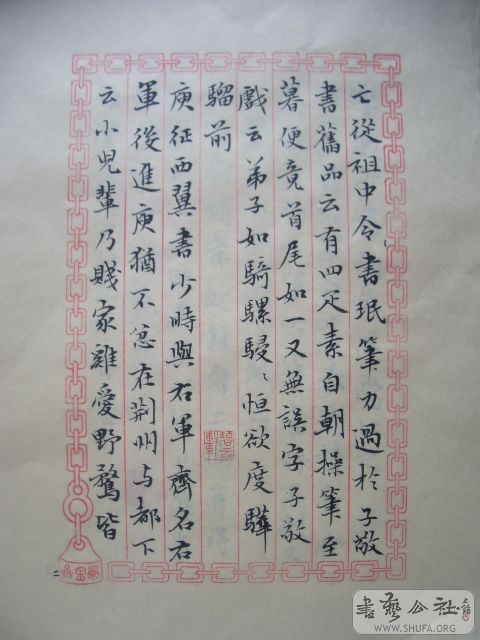 亡從祖中令書珉筆力過於子敬
書舊品云有四疋素自朝操筆至
暮便竟首尾如一又無誤字子敬
戲云弟子如騎騾駸〻恒欲度驊
騮前
庾征西翼書少時與右軍齊名右
軍後進庾猶不忿在荆州与都下
云小兒輩乃賤家雞愛野鶩皆
書藝公社
WWW.SHUFA.ORG